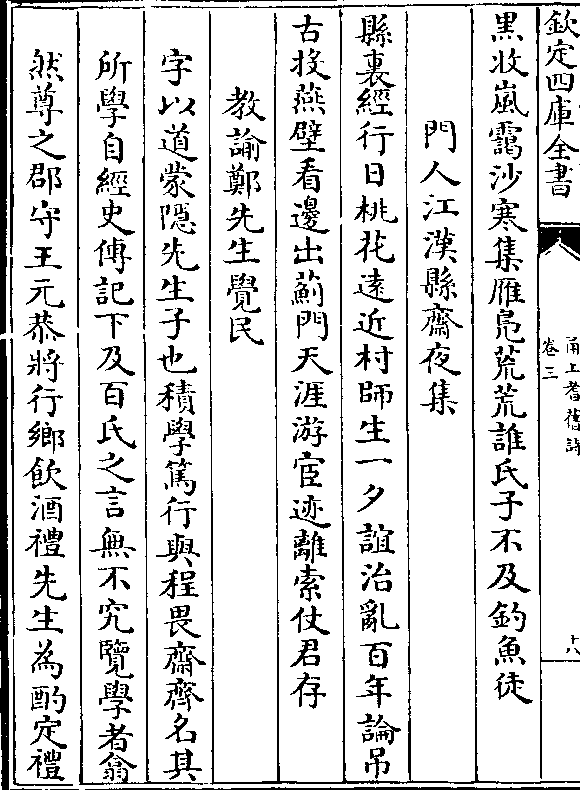 欽定四庫全書
甬上耆舊詩
卷三
十八
黑收嵐靄沙寒集雁鳧荒荒誰氏子不及釣魚徒
門人江漢縣齋夜集
縣裏經行日桃花遠近村師生一夕誼治亂百年論吊
古投燕壁看邊出薊門天涯游宦迹離索仗君存
教諭鄭先生覺民
字以道蒙隱先生子也積學篤行與程畏齋齊名其
所學自經史傳記下及百氏之言無不究覽學者翕
然尊之郡守王元恭將行鄉飲酒禮先生為酌定禮